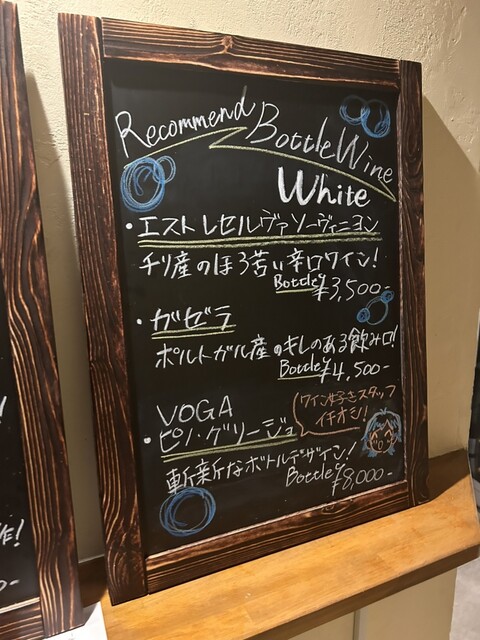 Recommend Bottle Wine
White
・エスト レセルヴァ ソーヴィニヨン
チリ産のほろ苦い辛口ワイン!
Bottle ¥3,500-
・ガゼラ
ポルトガル産のキレのある飲み口!
Bottle ¥4,500-
VOGA
・ピノ・グリージョ
ワイン好きスタッフ
イチオシ!
斬新なボトルデザイン!
Bottle ¥8,000-
作!